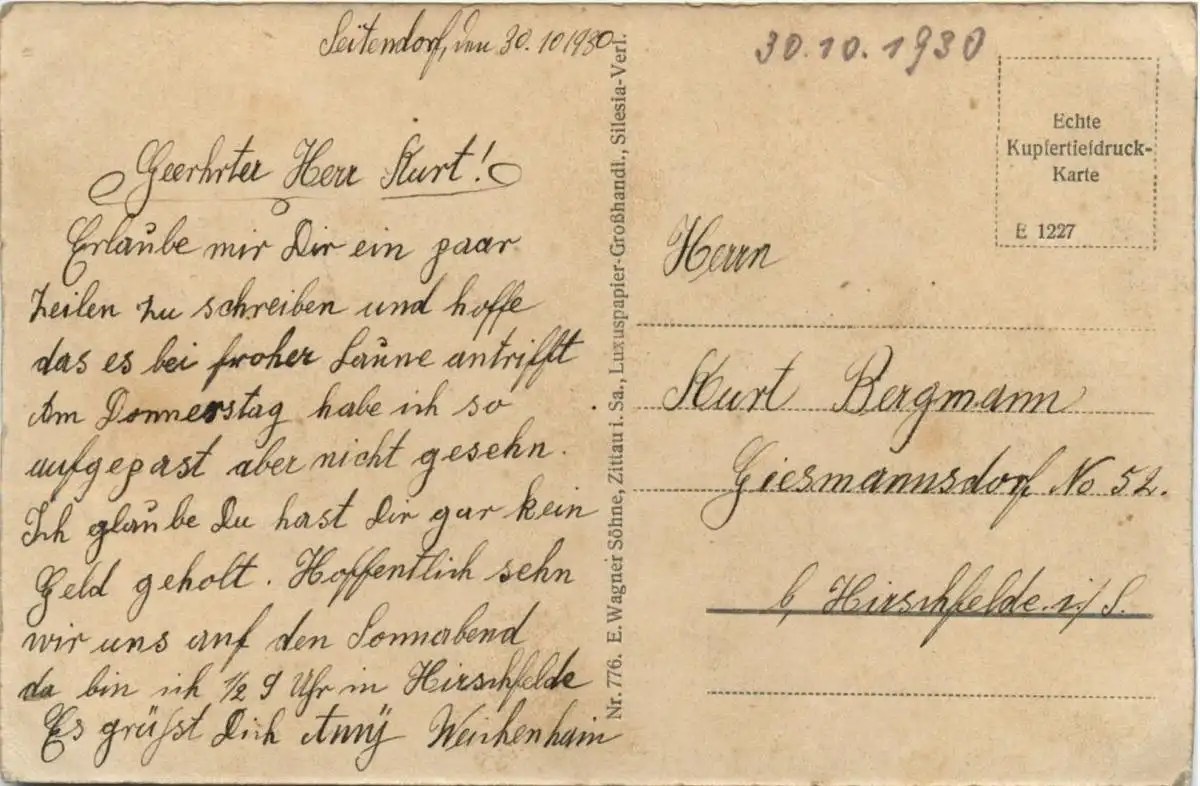 Seitendorf, den 30.10 1930
Geerhrter Herr Kurt!
Erlaube mir Dir ein paar
Zeilen zu schreiben und hoffe
das es bei froher Laune antrifft
Am Donnerstag habe ich so
aufgepast aber nicht gesehn.
Ich glaube Du hast Dir gar kein
Geld geholt. Hoffentlich sehn
wir uns auf den Sonnabend
da bin ich 1/2 9 Uhr in Hirschfelde
Es grüßt Dich Weichenhain
Nr. 776. E. Wagner Söhne, Zittau i. Sa., Luxuspapier-Großhandl., Silesia-Verl.
30.10.1930
Echte
Kupfertiefdruck-
Karte
E 1227
Herrn
Kurt Bergmann
Giesmannsdorf No 52.
b, Hirschfelde i/S.